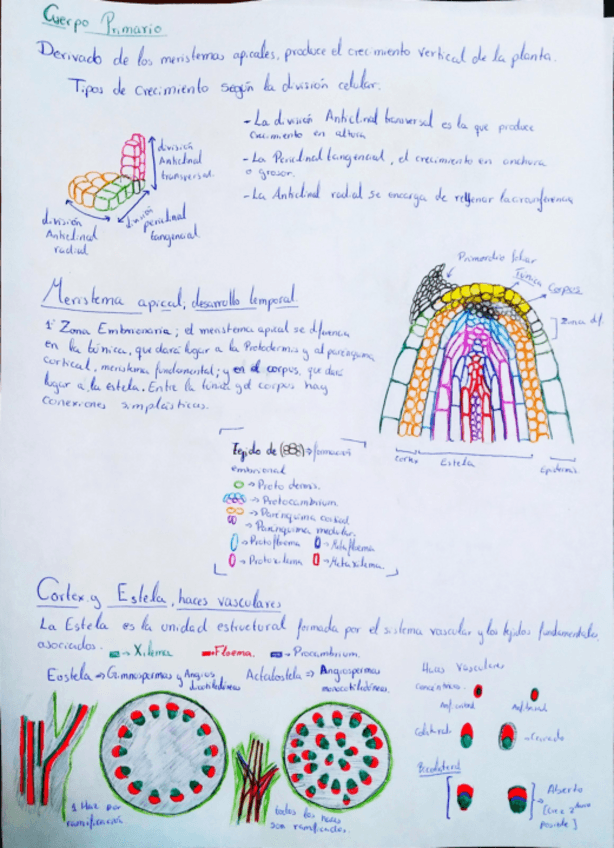 Cuerpo Primario
Derivado de los meristemas apicales, produce el crecimiento vertical de la planta.
Tipos de crecimiento según la división celular.
- La división Anticlinal transversal es la que produce
crecimiento en altura
- La Periclinal tangencial, el crecimiento en anchura
o grosor.
- La Anticlinal radial se encarga de rellenar la circunferencia
división
Anticlinal
transversal.
división
Anticlinal
radial
división
periclinal
tangencial
Primordio foliar
Túnica
Corpus
Zona dif.
Cortex
Estela
Epidermis
Meristema apical, desarrollo temporal.
1º Zona Embrionaria; el meristema apical se diferencia
en la túnica, que dará lugar a la Protodermis y al parénquima
cortical, meristema fundamental; y en el corpus, que dará
lugar a la estela. Entre la túnica y el corpus hay
conexiones simplásticas.
Tejido de → formación
embrional
→ Protodermis.
→ Protocambium.
→ Parénquima cortical
→ Parénquima medular.
→ Protofloema → Metafloema
→ Protoxilema → Metaxilema
Cortex y Estela, haces vasculares
La Estela es la unidad estructural formada por el sistema vascular y los tejidos fundamentales
asociados. → Xilema → Floema. → Procambium.
Eustela → Gimnospermas y Angios
dicotiledóneas
Actatostela → Angiospermas
monocotiledóneas.
Haces Vasculares
Concéntricos.
Colateral
→ Cerrado
Bicolateral
Abierto
posible]
1 Haz por
ramificación
todos los haces
son ramificados.